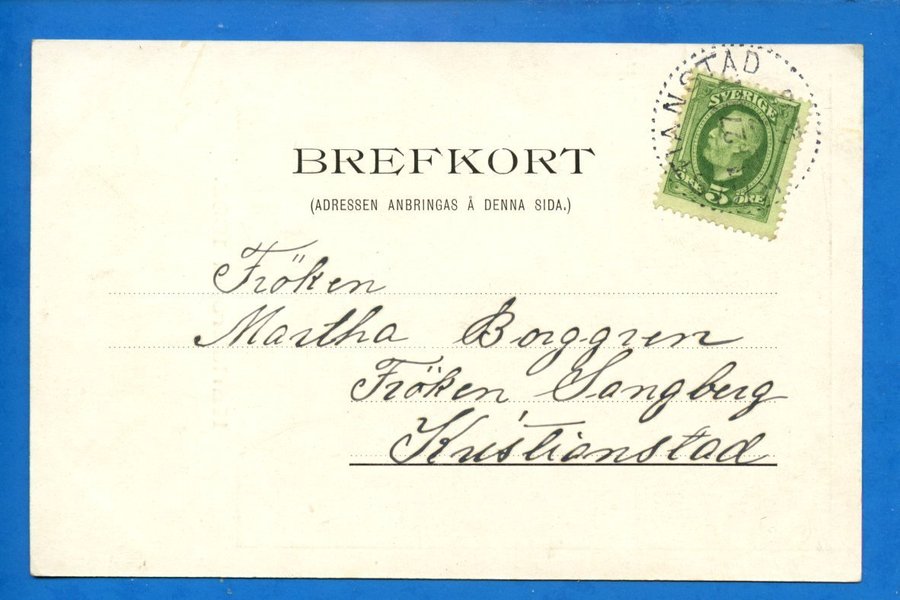 BREFKORT
(ADRESSEN ANBRINGAS Å DENNA SIDA.)
SVERIGE
5 ÖRE
27
Fröken
Martha Borggren
Fröken Sangberg
Kristianstad